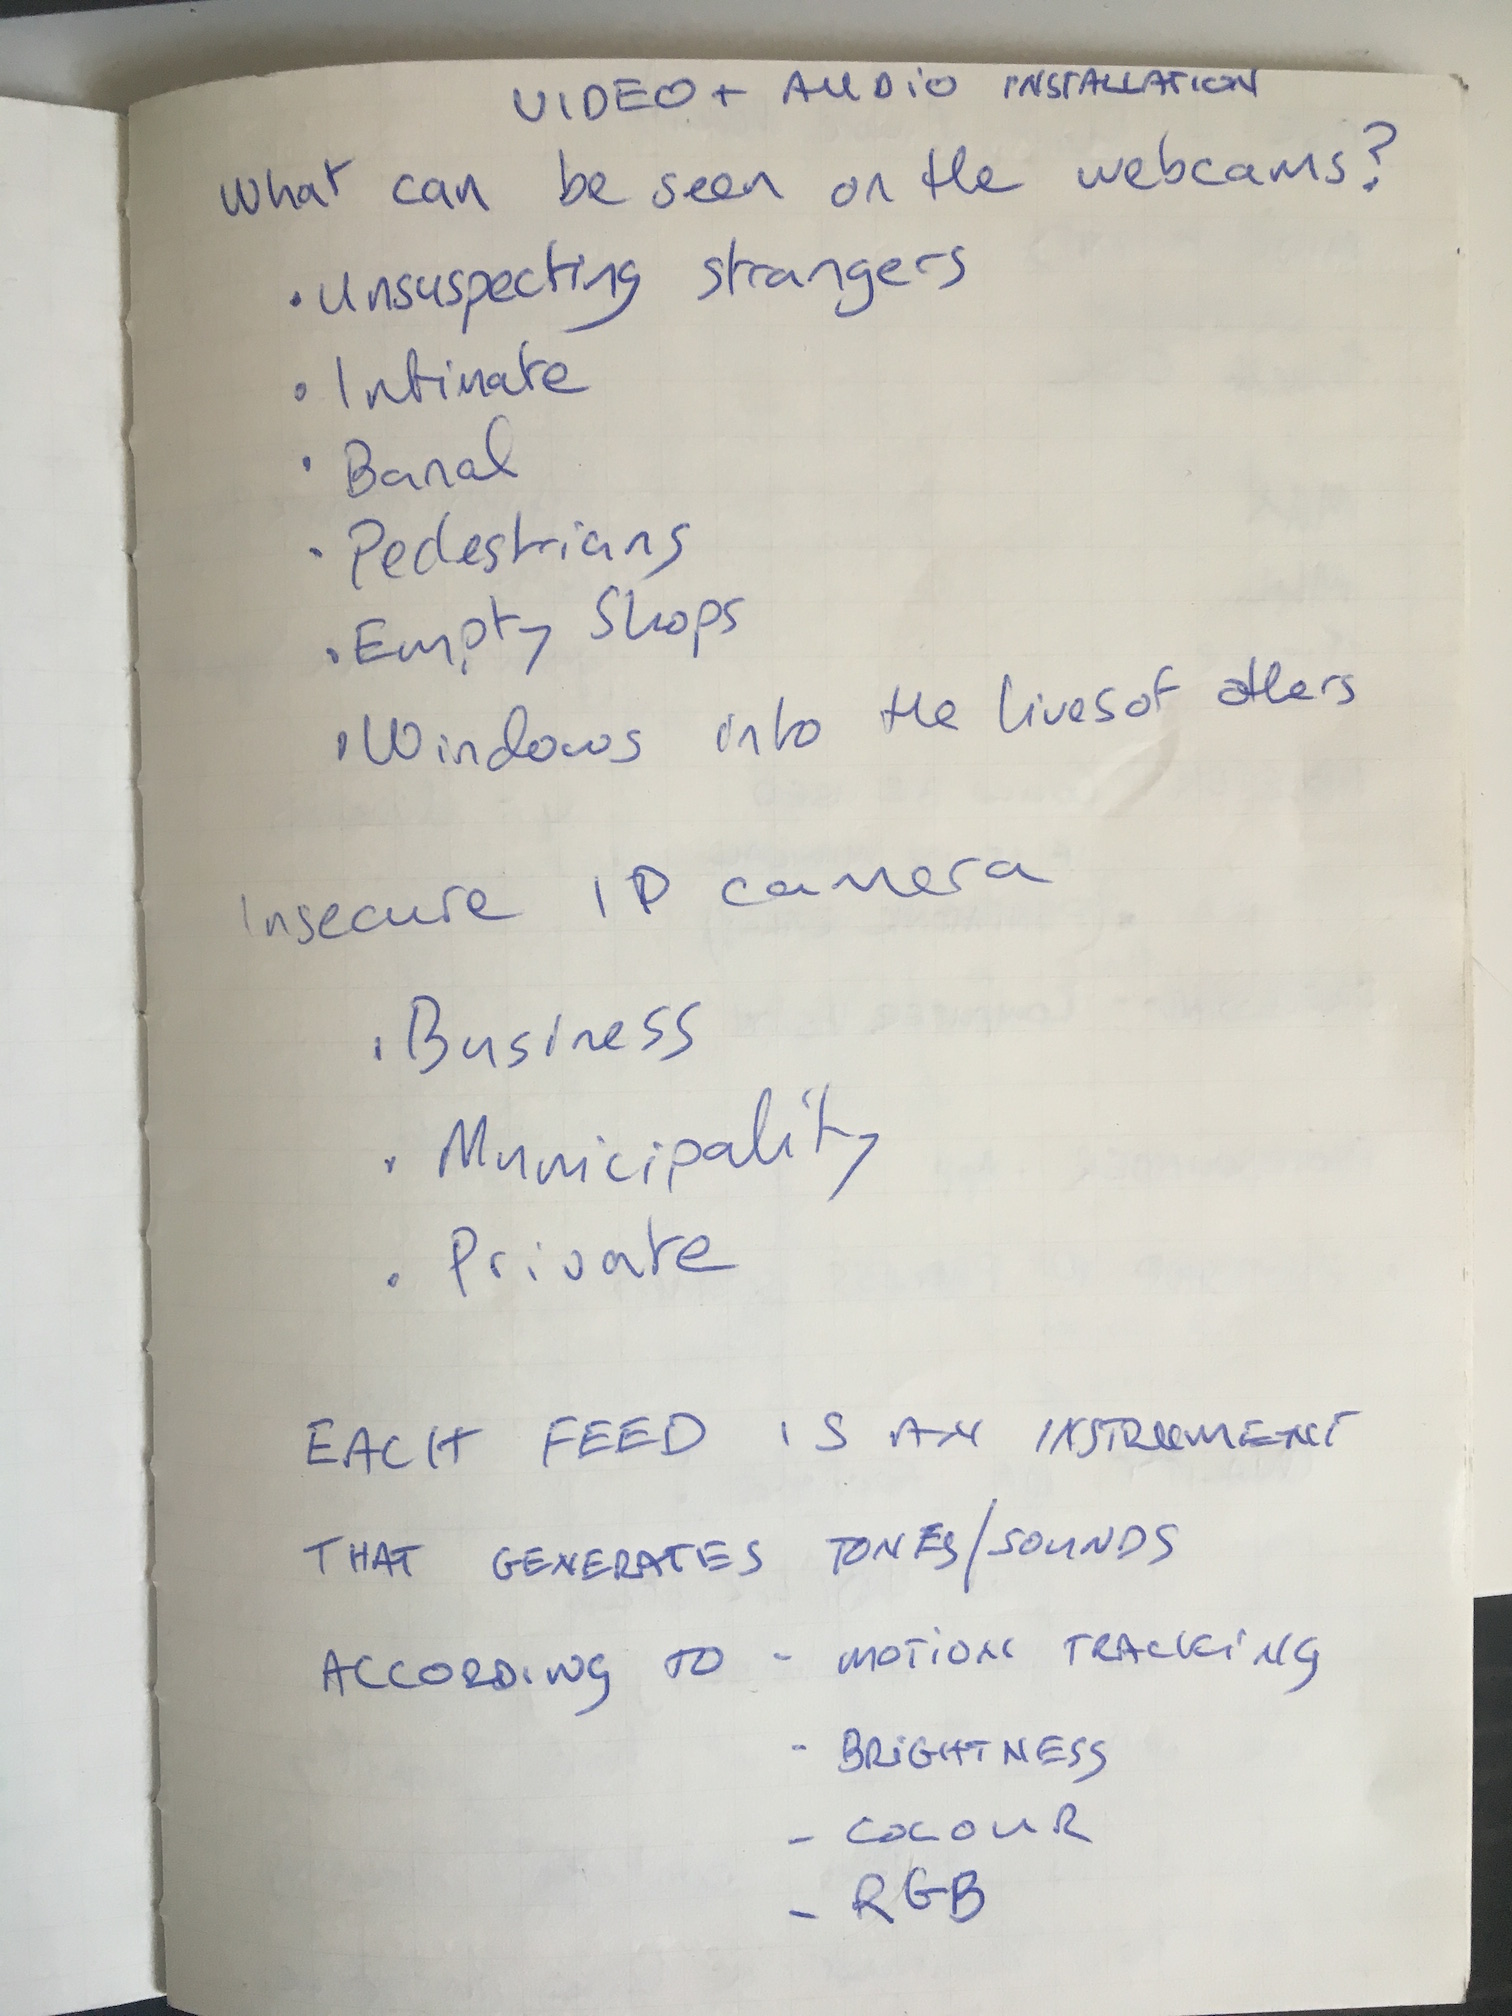 VIDEO + AUDIO INSTALLATION
What can be seen on the webcams?
• Unsuspecting strangers
• Intimate
• Banal
• Pedestrians
• Empty Shops
• Windows into the lives of others
Insecure IP camera
• Business
• Municipality
• Private
EACH FEED IS AN INSTRUMENT
THAT GENERATES TONES/SOUNDS
ACCORDING TO - MOTION TRACKING
- BRIGHTNESS
- COLOUR
- RGB